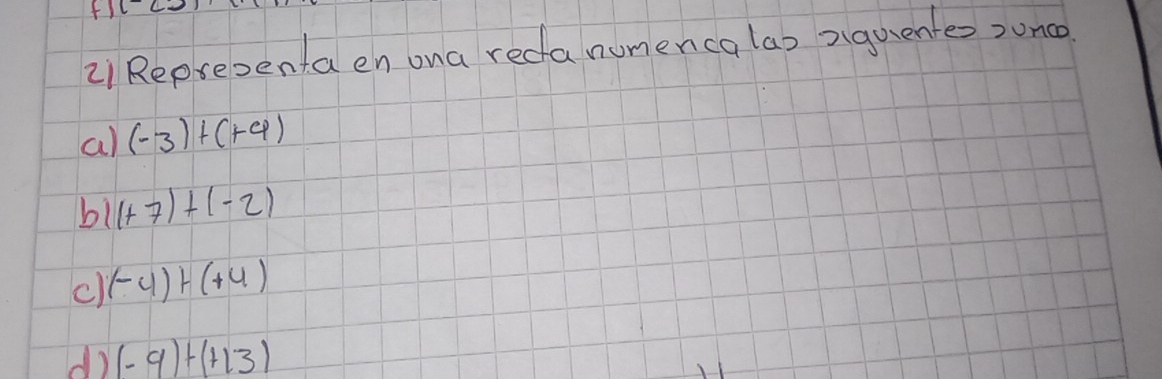 2) Representa en una recta numerica las siguientes sumas.
a) (-3)+(+9)
b) (+7)+(-2)
c) (-4)+(+4)
d) (-9)+(+13)